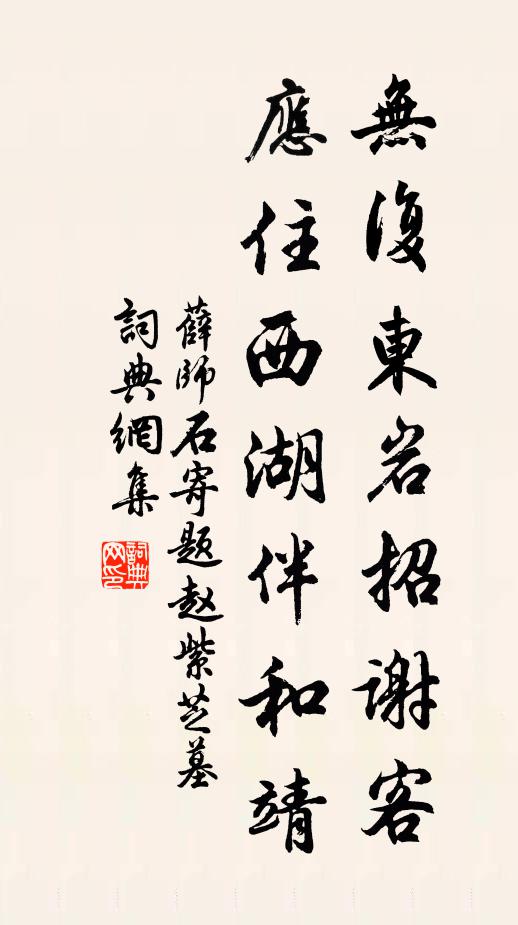 無復東岩招謝客
應住西湖伴和靖
薛師石寄題赵紫芝墓
詞典網集
詞典网印